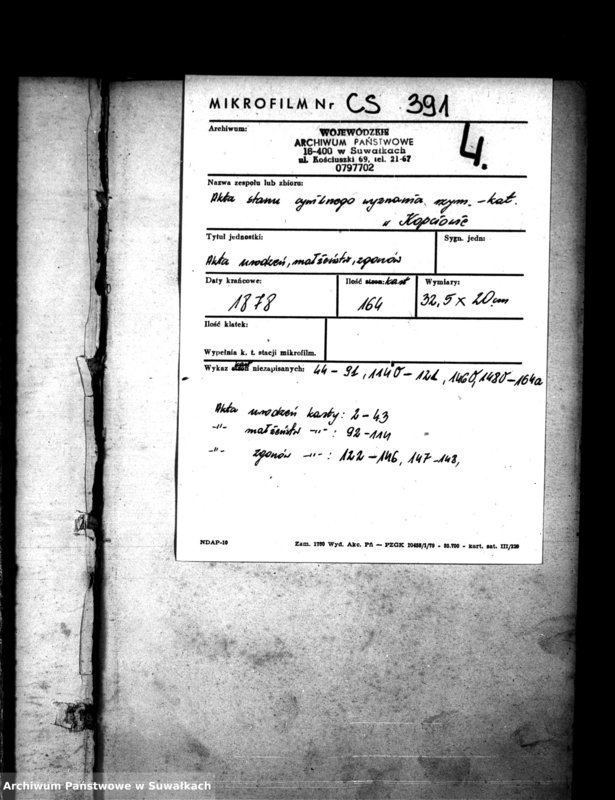 MIKROFILM Nr CS 391
Archiwum:
WOJEWÓDZKIE
ARCHIWUM PAŃSTWOWE
16-400 w Suwałkach
ul. Kościuszki 69, tel. 21-67
0797702
4.
Nazwa zespołu lub zbioru:
Akta stanu cywilnego wyznania rzym.-kat.
w Kopciowie
Tytuł jednostki:
Sygn. jedn:
Akta urodzeń, małżeństw, zgonów
Daty krańcowe:
1878
Ilość kart
164
Wymiary:
32,5 x 20 cm
Ilość klatek:
Wypełnia k. t. stacji mikrofilm.
Wykaz niezapisanych: 44-91, 114v-121, 146v, 148v-164a
Akta urodzeń karty: 2-43
-"- małżeństw -"-: 92-114
-"- zgonów -"-: 122-146, 147-148,
NDAP-10
Zam. 1790 Wyd. Akc. Pń — PZGK
kart. sat. III/220
Archiwum Państwowe w Suwałkach